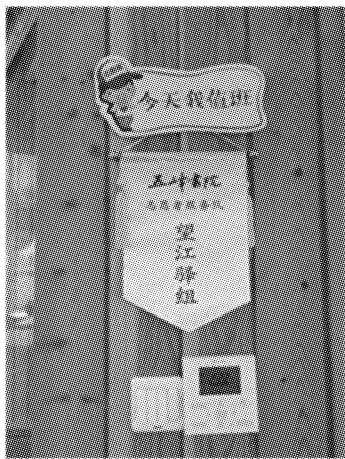 今天我值班
五峰书院
志愿者服务队
望江驿组